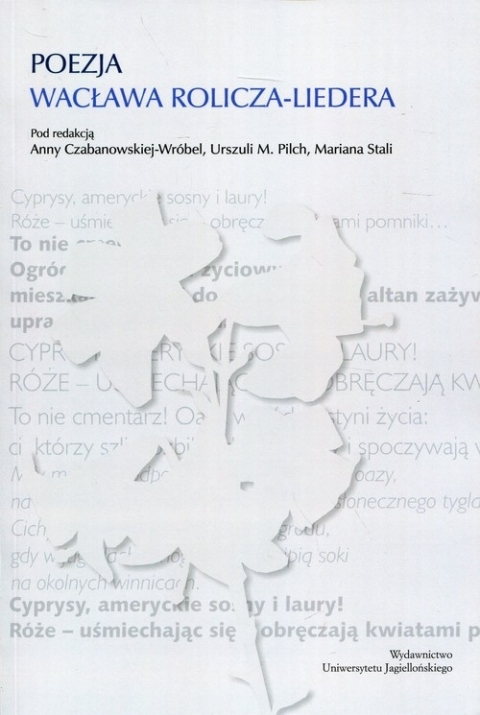 POEZJA
WACŁAWA ROLICZA-LIEDERA
Pod redakcją
Anny Czabanowskiej-Wróbel, Urszuli M. Pilch, Mariana Stali
Cyprysy, ameryckie sosny i laury!
Róże – uśmie się obręcz ami pomniki…
To nie
Ogró życiow
miesz do altan zażyw
upra
CYPR AMERYCKIE SOS LAURY!
RÓŻE – UŚMIECHA OBRĘCZAJĄ KW
To nie cmentarz! Oa w tyni życia:
ci, którzy szli i spoczywają w
oazy,
na słonecznego tygla
Cich grodu,
gdy w pią soki
na okolnych winnicach.
Cyprysy, ameryckie sosny i laury!
Róże – uśmiechając się obręczają kwiatami p
Wydawnictwo
Uniwersytetu Jagiellońskiego